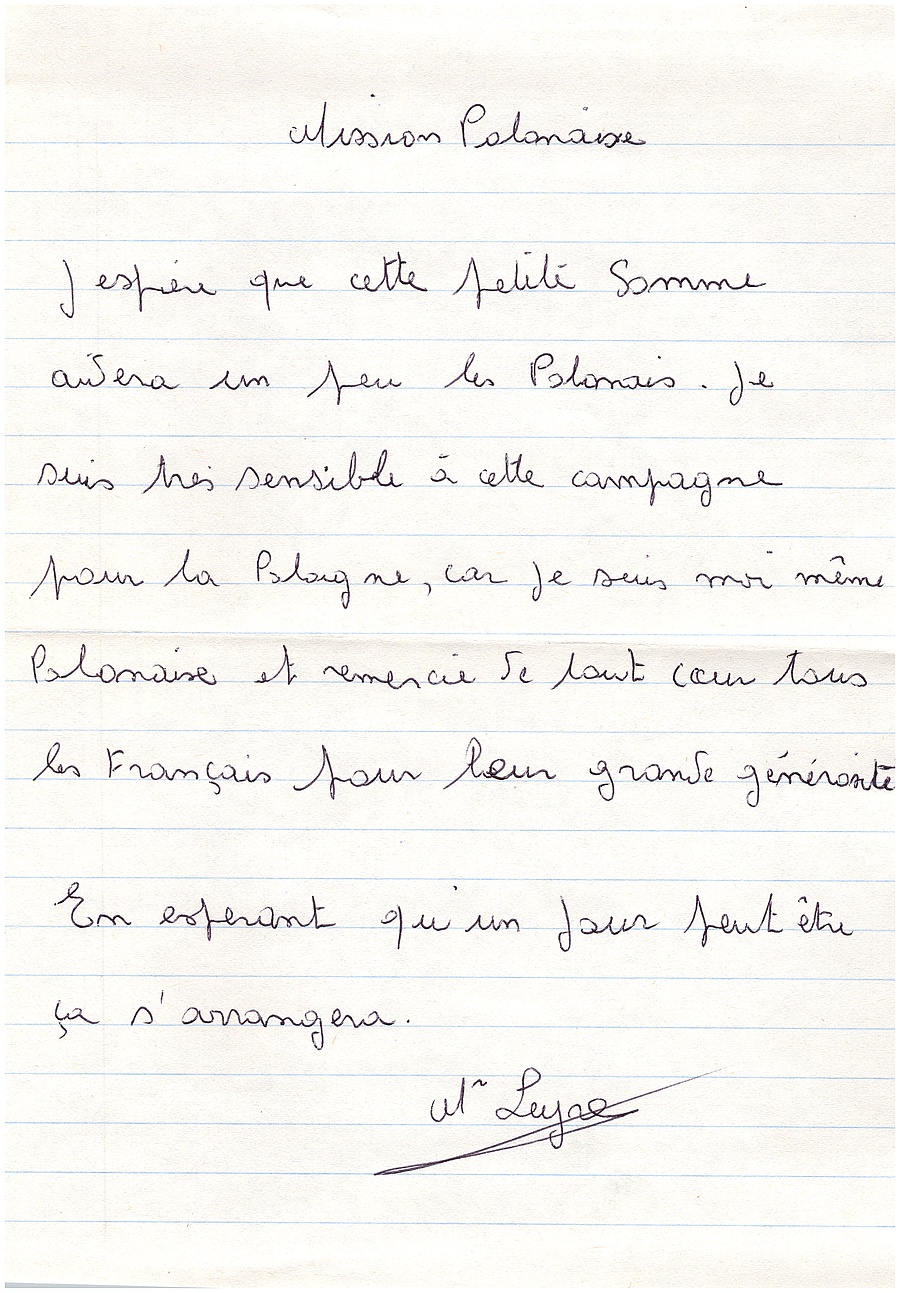 Mission Polonaise
J espère que cette petite Somme
aidera un peu les Polonais. Je
suis très sensible à cette campagne
pour la Pologne, car je suis moi même
Polonaise et remercie de tout cœur tous
les Français pour leur grande générosité
En esperant qu'un jour peut être
ça s'arrangera.